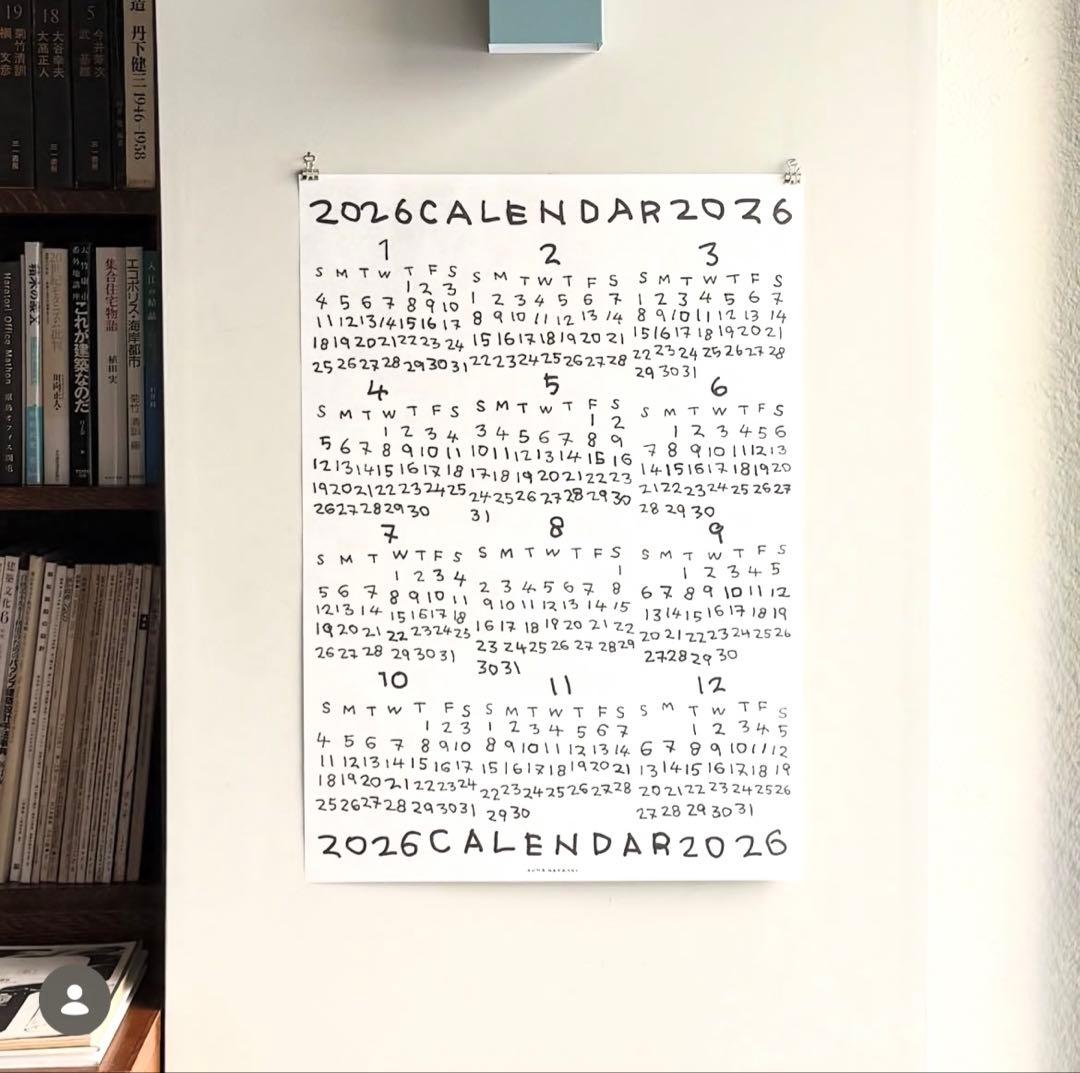 19
槇 文彦
菊竹清訓
18
大高正人
大谷幸夫
5
武 基雄
今井兼次
三一書房
三一書房
三一書房
丹下健三 1946-1958
2026CALENDAR2026
1 2 3
S M T W T F S S M T W T F S S M T W T F S
1 2 3
4 5 6 7 8 9 10 1 2 3 4 5 6 7 1 2 3 4 5 6 7
11 12 13 14 15 16 17 8 9 10 11 12 13 14 8 9 10 11 12 13 14
18 19 20 21 22 23 24 15 16 17 18 19 20 21 15 16 17 18 19 20 21
25 26 27 28 29 30 31 22 23 24 25 26 27 28 22 23 24 25 26 27 28
29 30 31
4 5 6
S M T W T F S S M T W T F S S M T W T F S
1 2 3 4 1 2 1 2 3 4 5 6
5 6 7 8 9 10 11 3 4 5 6 7 8 9 7 8 9 10 11 12 13
12 13 14 15 16 17 18 10 11 12 13 14 15 16 14 15 16 17 18 19 20
19 20 21 22 23 24 25 17 18 19 20 21 22 23 21 22 23 24 25 26 27
26 27 28 29 30 24 25 26 27 28 29 30 28 29 30
31
7 8 9
S M T W T F S S M T W T F S S M T W T F S
1 2 3 4 1 1 2 3 4 5
5 6 7 8 9 10 11 2 3 4 5 6 7 8 6 7 8 9 10 11 12
12 13 14 15 16 17 18 9 10 11 12 13 14 15 13 14 15 16 17 18 19
19 20 21 22 23 24 25 16 17 18 19 20 21 22 20 21 22 23 24 25 26
26 27 28 29 30 31 23 24 25 26 27 28 29 27 28 29 30
30 31
10 11 12
S M T W T F S S M T W T F S S M T W T F S
1 2 3 1 2 3 4 5 6 7 1 2 3 4 5
4 5 6 7 8 9 10 8 9 10 11 12 13 14 6 7 8 9 10 11 12
11 12 13 14 15 16 17 15 16 17 18 19 20 21 13 14 15 16 17 18 19
18 19 20 21 22 23 24 22 23 24 25 26 27 28 20 21 22 23 24 25 26
25 26 27 28 29 30 31 29 30 27 28 29 30 31
2026CALENDAR2026
Haratori Office Mathon
これが建築なのだ
集合住宅物語
植田 実
エコポリス・海岸都市
菊竹清訓 編
建築文化 6